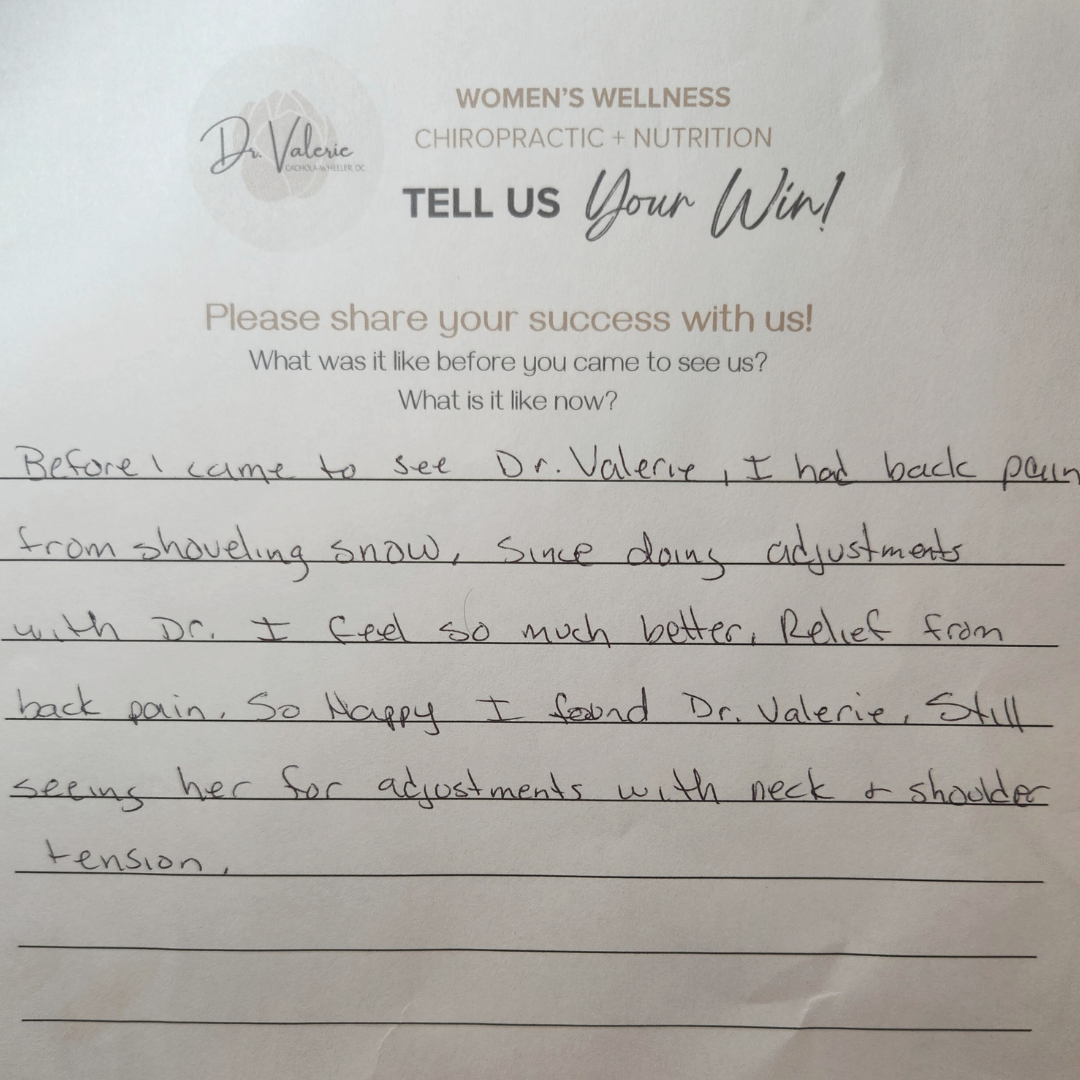 Dr. Valerie
CACHOLA-WHEELER, DC
WOMEN'S WELLNESS
CHIROPRACTIC + NUTRITION
TELL US Your Win!
Please share your success with us!
What was it like before you came to see us?
What is it like now?
Before I came to see Dr. Valerie, I had back pain
from shoveling snow, Since doing adjustments
with Dr. I feel so much better. Relief from
back pain. So Happy I found Dr. Valerie. Still
seeing her for adjustments with neck + shoulder
tension.